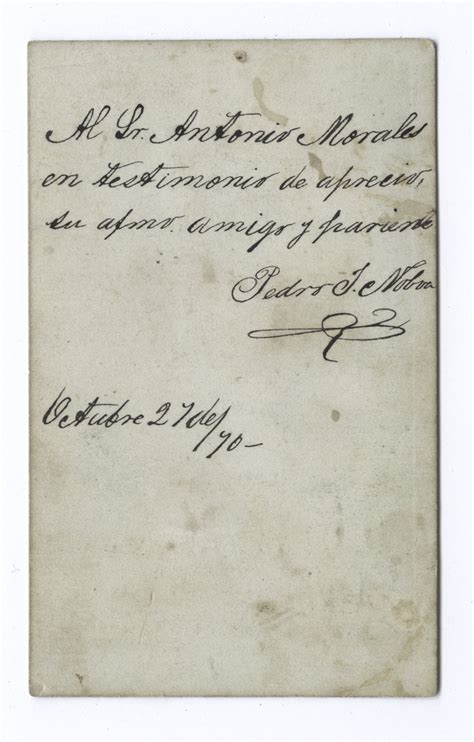 Al Sr. Antonio Morales
en testimonio de aprecio,
su afmo. amigo y pariente
Pedro J. Noboa
Octubre 27 de/70-